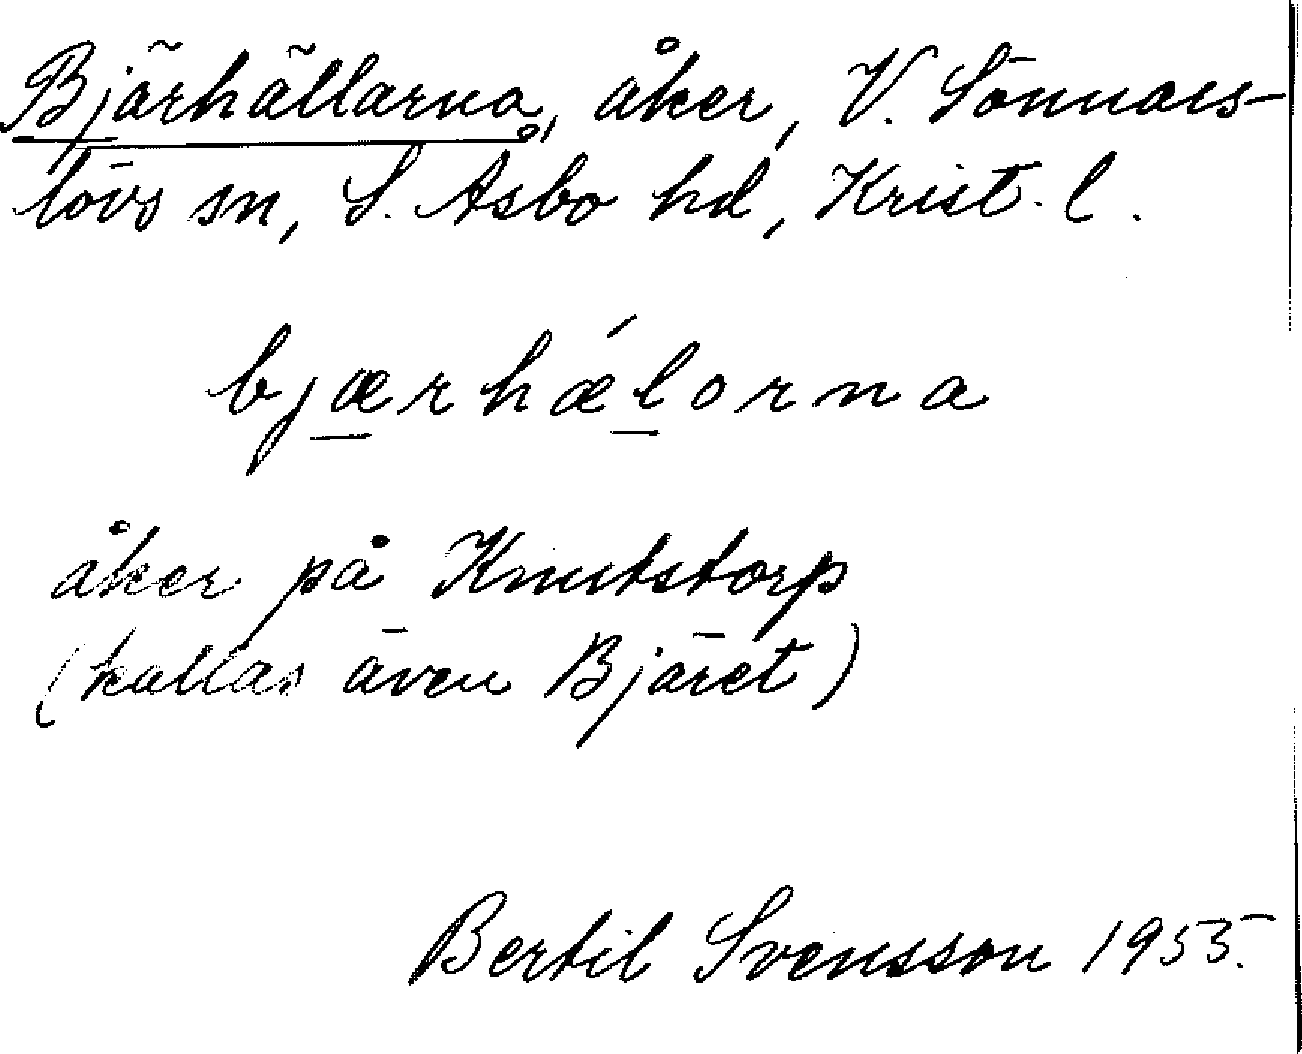 Bjärhällarna, åker, V. Sönnars-
lövs sn, S. Åsbo hd, Krist. l.
bjærhǽlorna
åker på Knutstorp
(kallas även Bjäret)
Bertil Svensson 1955.